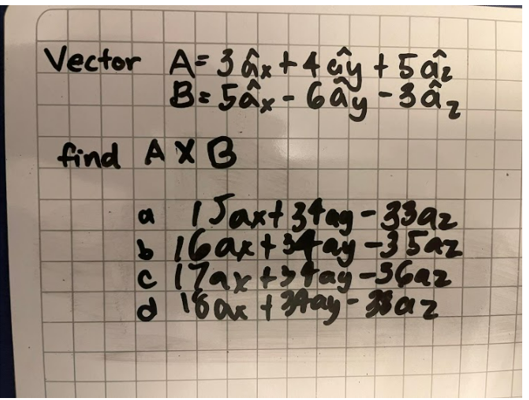 Vector A= 3 âx + 4 ây + 5 âz
B= 5âx - 6ây - 3âz
find A X B
a 15ax+34ay-33az
b 16ax+34ay-35az
c 17ax+34ay-36az
d 18ax+34ay-38az